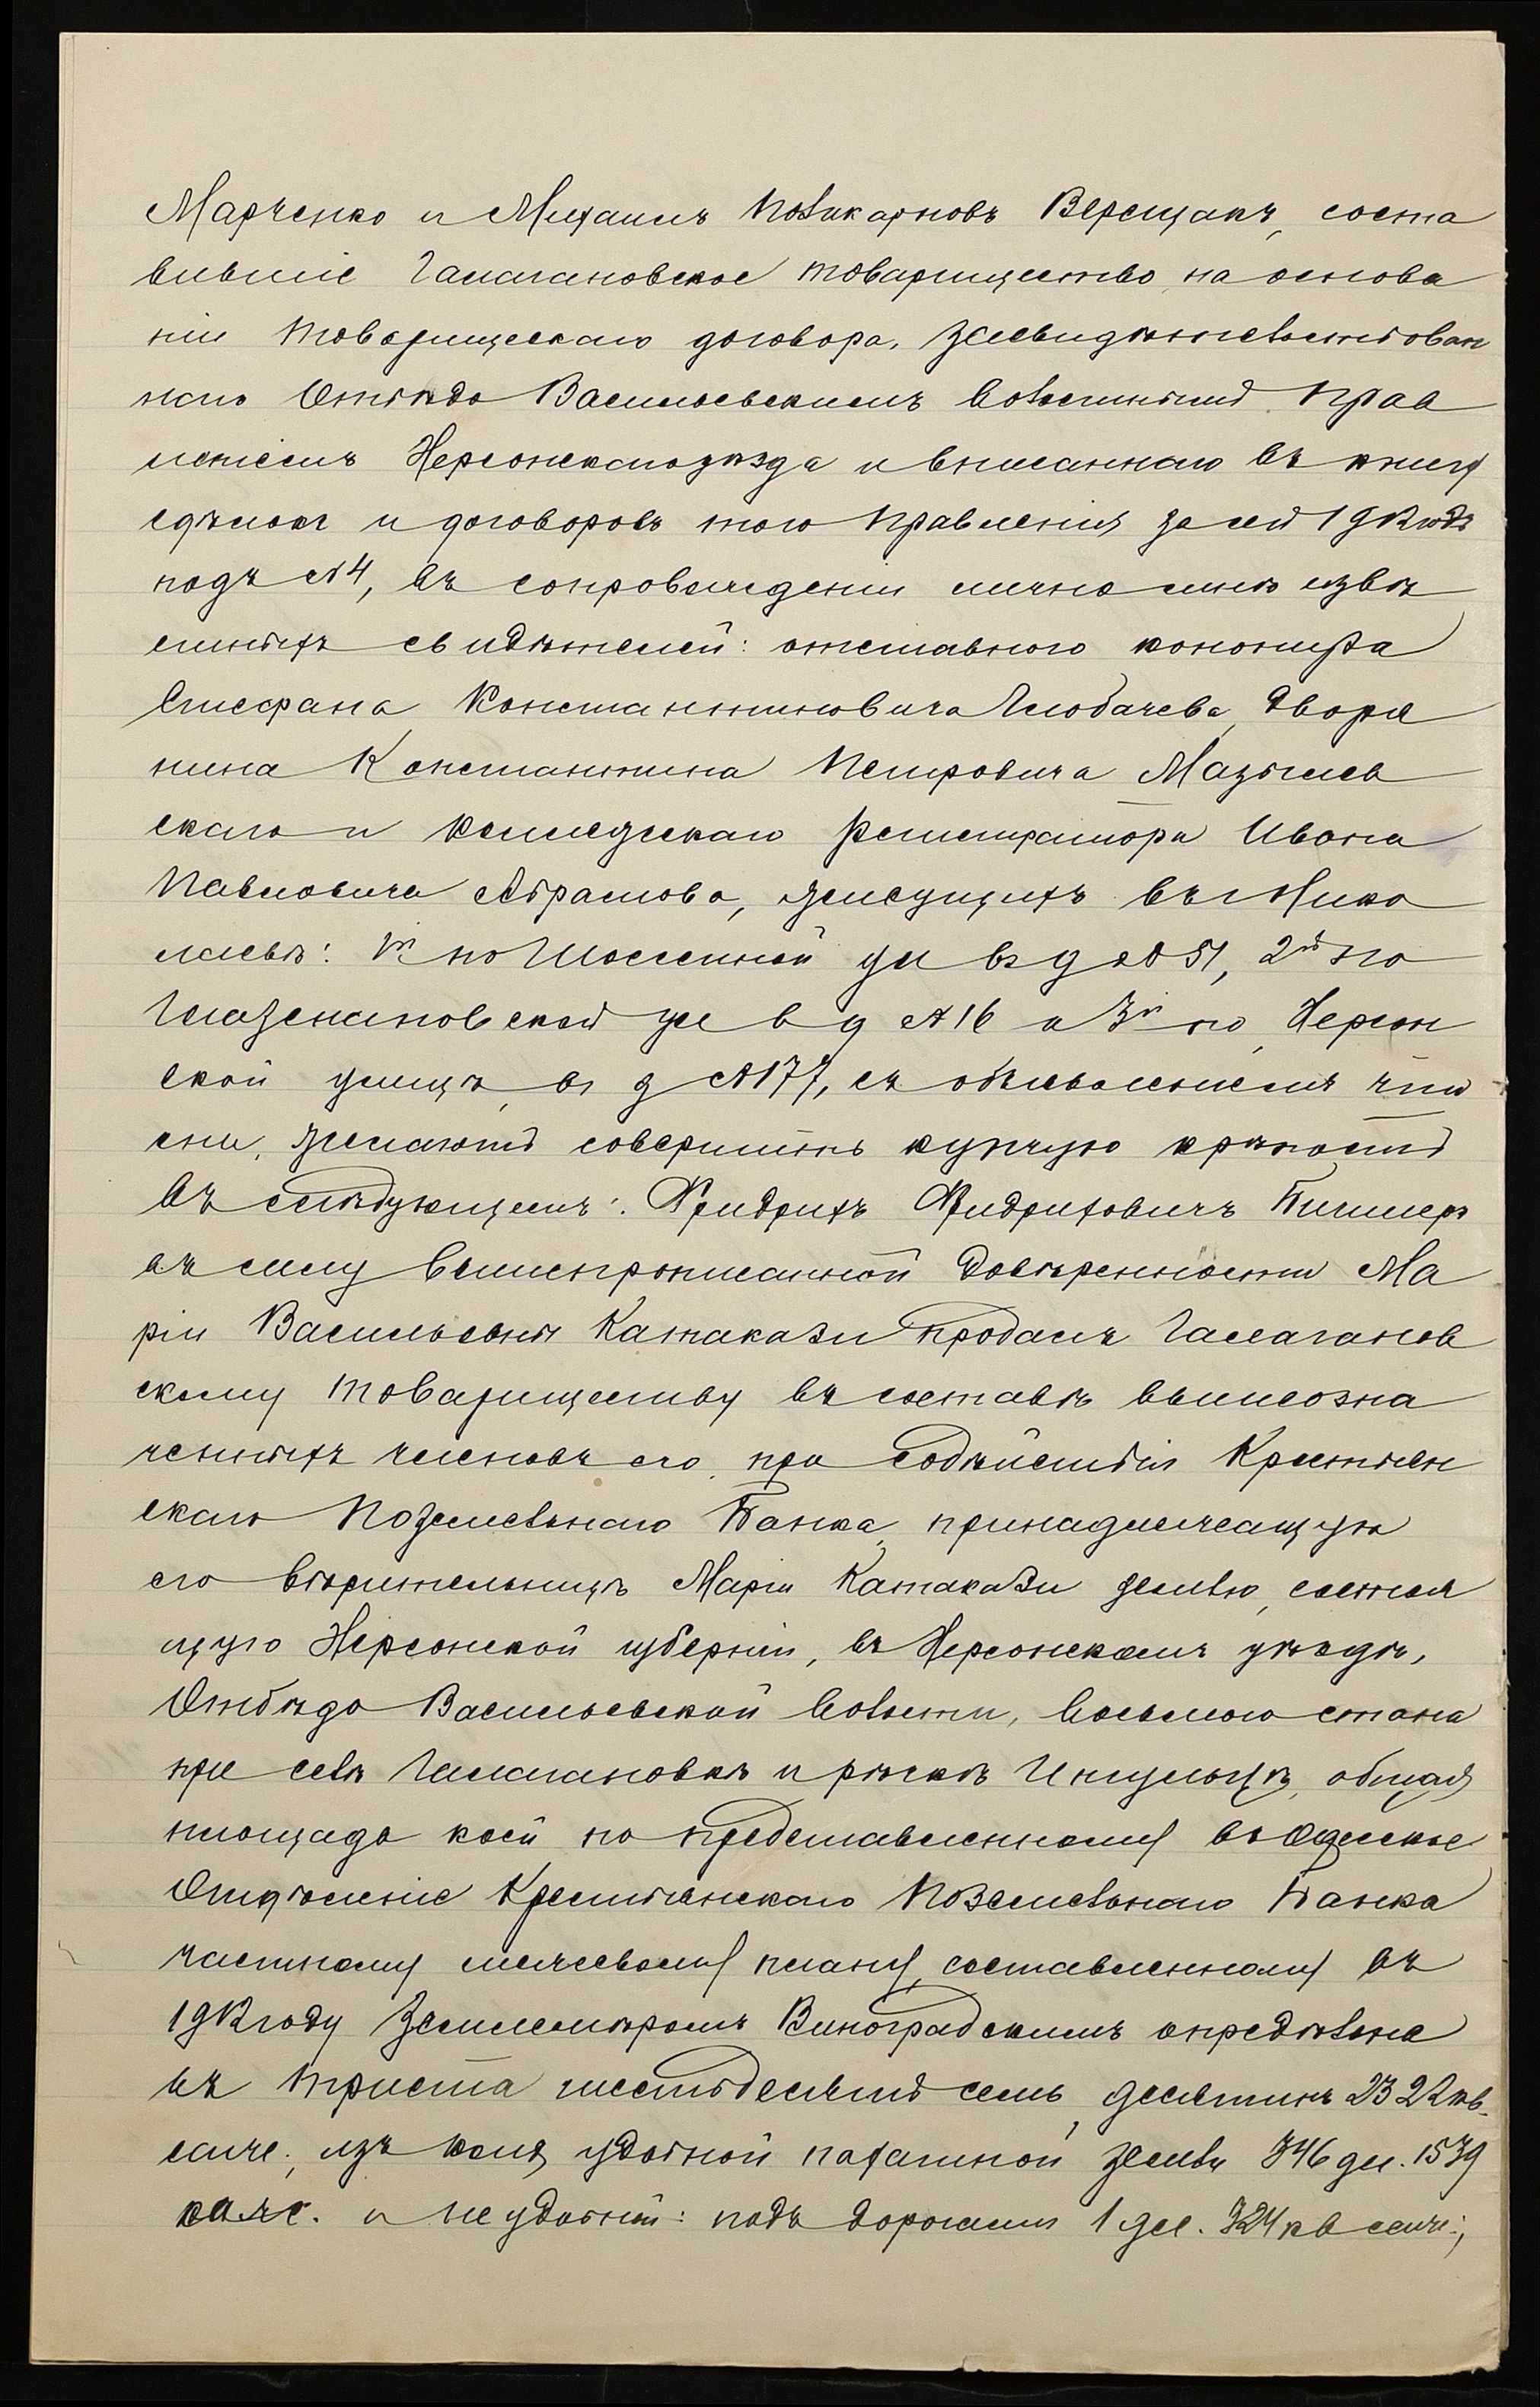 Марченко и Михаилъ Поликарповъ Верещакъ, соста
вившіе Галагановское товарищество на основа
ніи товарищескаго договора, засвидѣтельствован
наго Отбѣдо Васильевскимъ Волостнымъ Прав
леніемъ Херсонскаго уѣзда и вписаннаго въ книгу
сдѣлокъ и договоровъ того Правленія за сей 1912 годъ
подъ №4, въ сопровожденіи лично мнѣ извѣ
стныхъ свидѣтелей: отставного
Стефана Константиновича Двора
нина Константина Петровича
скаго и Коллежскаго Регистратора Ивана
Павловича Абрамова, живущихъ въ г Нико
лаевѣ: 1й по ул въ д №51, 2й по
ул въ д №16 и 3й по Херсон
ской улицѣ, въ д №177, съ объявленіемъ что
они, желаютъ совершить купчую крѣпость
въ слѣдующемъ: Фридрихъ Фридриховичъ
въ силу вышепрописанной довѣренности Ма
ріи Васильевны Катакази продалъ Галаганов
скому товариществу въ составѣ вышеозна
ченныхъ членовъ его, при содѣйствіи Крестьян
скаго Поземельнаго Банка, принадлежащую
его вѣрительницѣ Маріи Катакази землю, состоя
щую Херсонской губерніи, въ Херсонскомъ уѣздѣ,
Отбѣдо Васильевской волости, восьмого стана
при селѣ Галагановкѣ и рѣчкѣ Ингульцѣ, общая
площадь коей по представленному въ Одесское
Отдѣленіе Крестьянскаго Поземельнаго Банка
частному межевому плану, составленному въ
1912 году Землемѣромъ Виноградскимъ опредѣлена
въ триста шестьдесятъ семь десятинъ 2322 кв.
саж., изъ коихъ удобной пахатной земли 346 дес. 1539
кв. с. и неудобной: подъ дорогами 1 дес. 324 кв саж.;